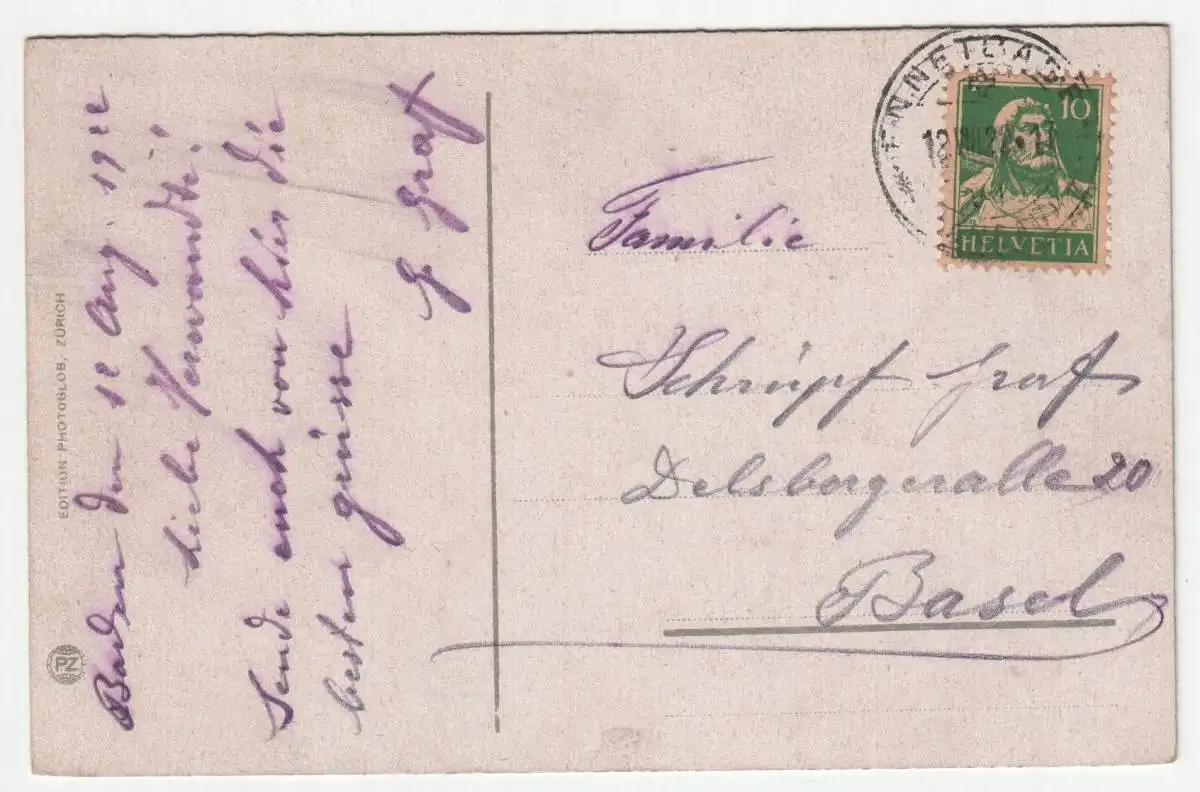 Baden den 12 Aug. 1922
Liebe Verwandte!
Sende euch von hier die
besten grüsse
G Graf
EDITION PHOTOGLOB, ZÜRICH
PZ
ENNETBADEN
12.VIII.22
10
HELVETIA
Familie
Schrüpf Graf
Delsbergeralle 20
Basel